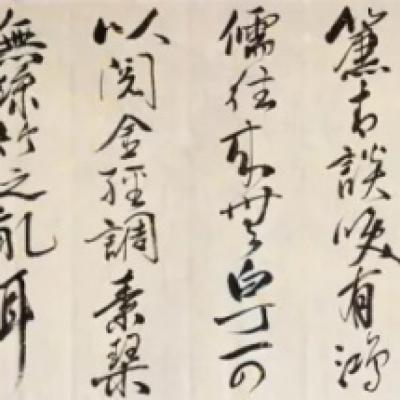 簾青談咲有鴻
儒往來無白丁可
以閱金經調素琴
無絲竹之亂耳